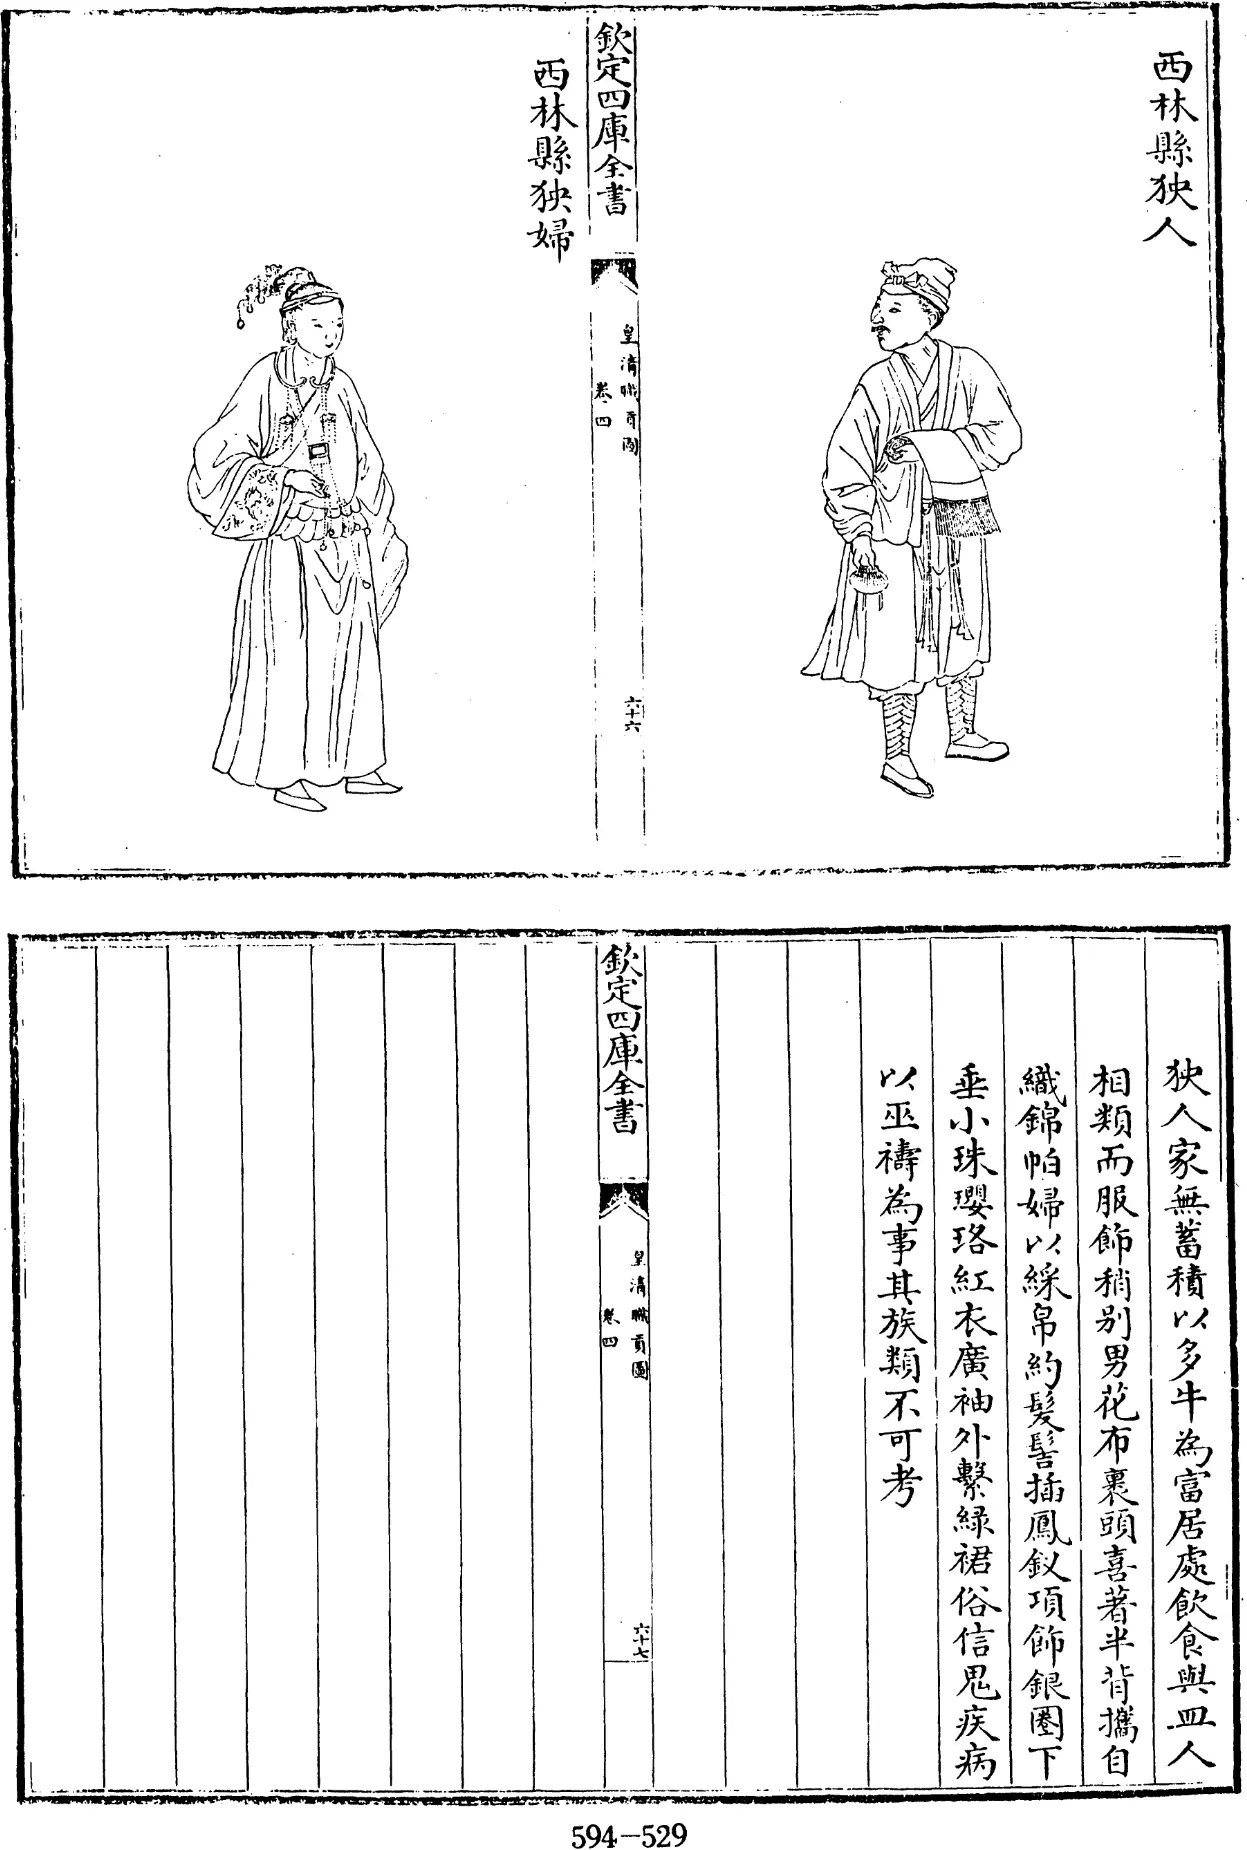 西林縣狹人
欽定四庫全書
皇清職貢圖
卷四
六十六
西林縣狹婦
狹人家無蓄積以多牛為富居處飲食與皿人
相類而服飾稍別男花布裹頭喜著半背攜自
織錦帕婦以綵帛約髮髻插鳳釵項飾銀圈下
垂小珠瓔珞紅衣廣袖外繫綠裙俗信鬼疾病
以巫禱為事其族類不可考
欽定四庫全書
皇清職貢圖
卷四
六十七
594-529